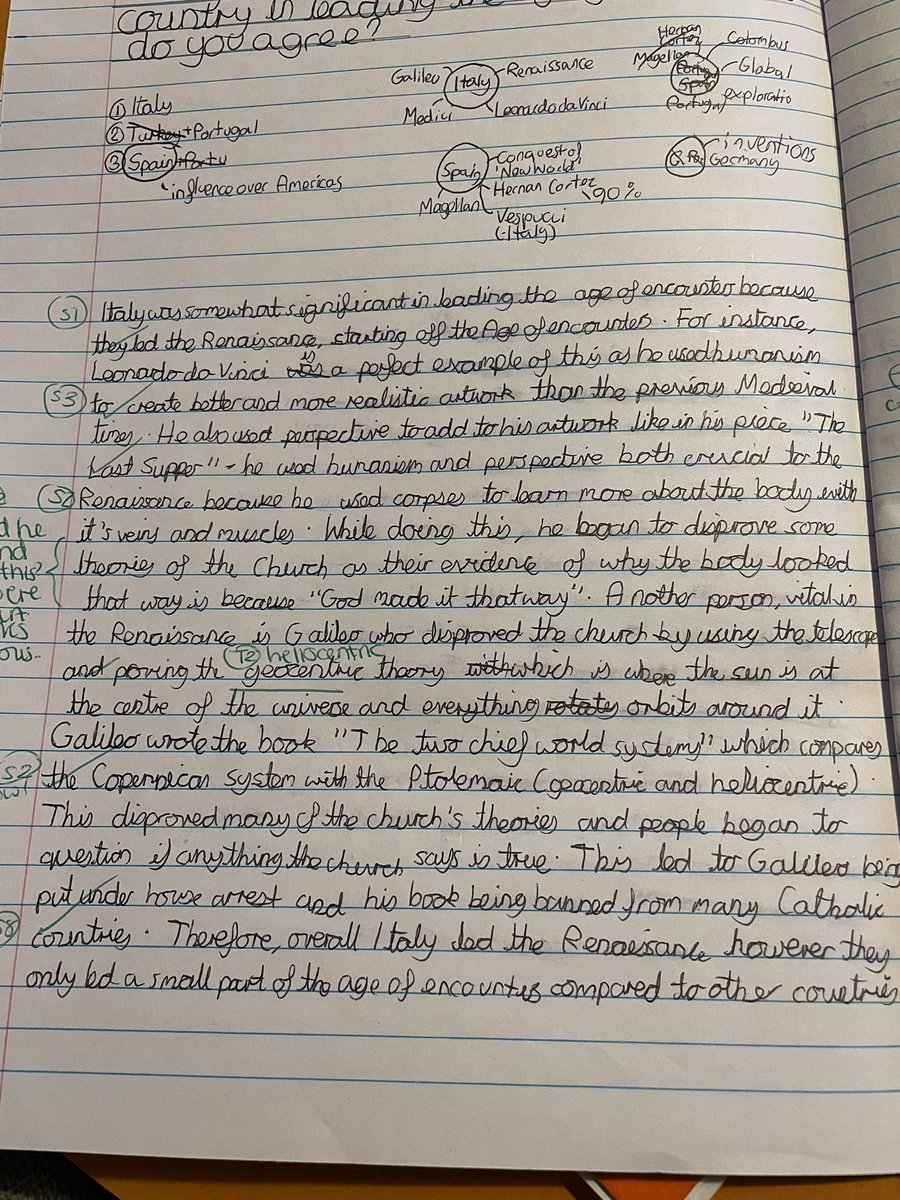 country in leading the
do you agree?
① Italy
② Turkey + Portugal
③ Spain + Portu
influence over Americas
Galileo
Italy
Renaissance
Medici
Leonardo da Vinci
Hernan
Cortez
Magellan
Portugal
Spain
Portugal
Colombus
Global
exploratio
Spain
Conquest of
'New World'
Hernan Cortez
90%
Magellan
Vespucci
(-Italy)
inventions
Germany
S1 Italy was somewhat significant in leading the age of encounter because
they led the Renaissance, starting off the Age of encounter. For instance,
Leonardo da Vinci was is a perfect example of this as he used humanism
S3 to create better and more realistic artwork than the previous Medieval
times. He also used perspective to add to his artwork like in his piece "The
Last Supper" - he used humanism and perspective both crucial to the
S2 Renaissance because he used corpses to learn more about the body with
it's veins and muscles. While doing this, he began to disprove some
theories of the Church as their evidence of why the body looked
that way is because "God made it that way". Another person, vital in
the Renaissance is Galileo who disproved the church by using the telescope
T2 heliocentric
and proving the geocentric theory with which is where the sun is at
the centre of the universe and everything rotates orbits around it.
Galileo wrote the book "The two chief world systems" which compares
S2 the Copernican system with the Ptolemaic (geocentric and heliocentric).
This disproved many of the church's theories and people began to
question if anything the church says is true. This led to Galileo being
put under house arrest and his book being banned from many Catholic
S8 countries. Therefore, overall Italy led the Renaissance however they
only led a small part of the age of encounter compared to other countries